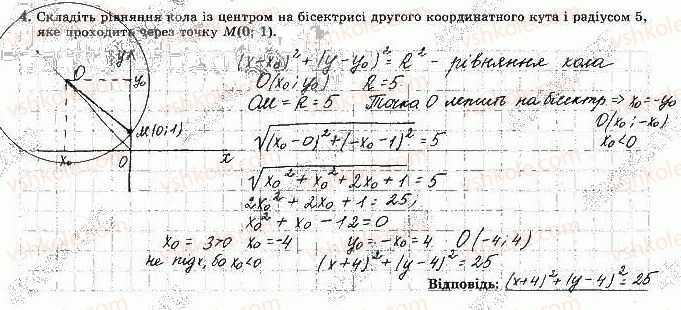 4. Складіть рівняння кола із центром на бісектрисі другого координатного кута і радіусом 5,
яке проходить через точку M(0; 1).
(x-x₀)²+(y-y₀)²=R² - рівняння кола
O(x₀; y₀) R=5
OM = R = 5 Точка O лежить на бісектр ⇒ x₀=-y₀
O(x₀; -x₀)
x₀<0
y
O y₀
M(0;1)
x₀ O x
√((x₀-0)²+(-x₀-1)²) = 5
√(x₀²+x₀²+2x₀+1) = 5
2x₀²+2x₀+1=25;
x₀²+x₀-12=0
x₀ = 3>0 x₀=-4 y₀=-x₀=4 O(-4;4)
не підх, бо x₀<0 (x+4)²+(y-4)²=25
Відповідь: (x+4)²+(y-4)²=25